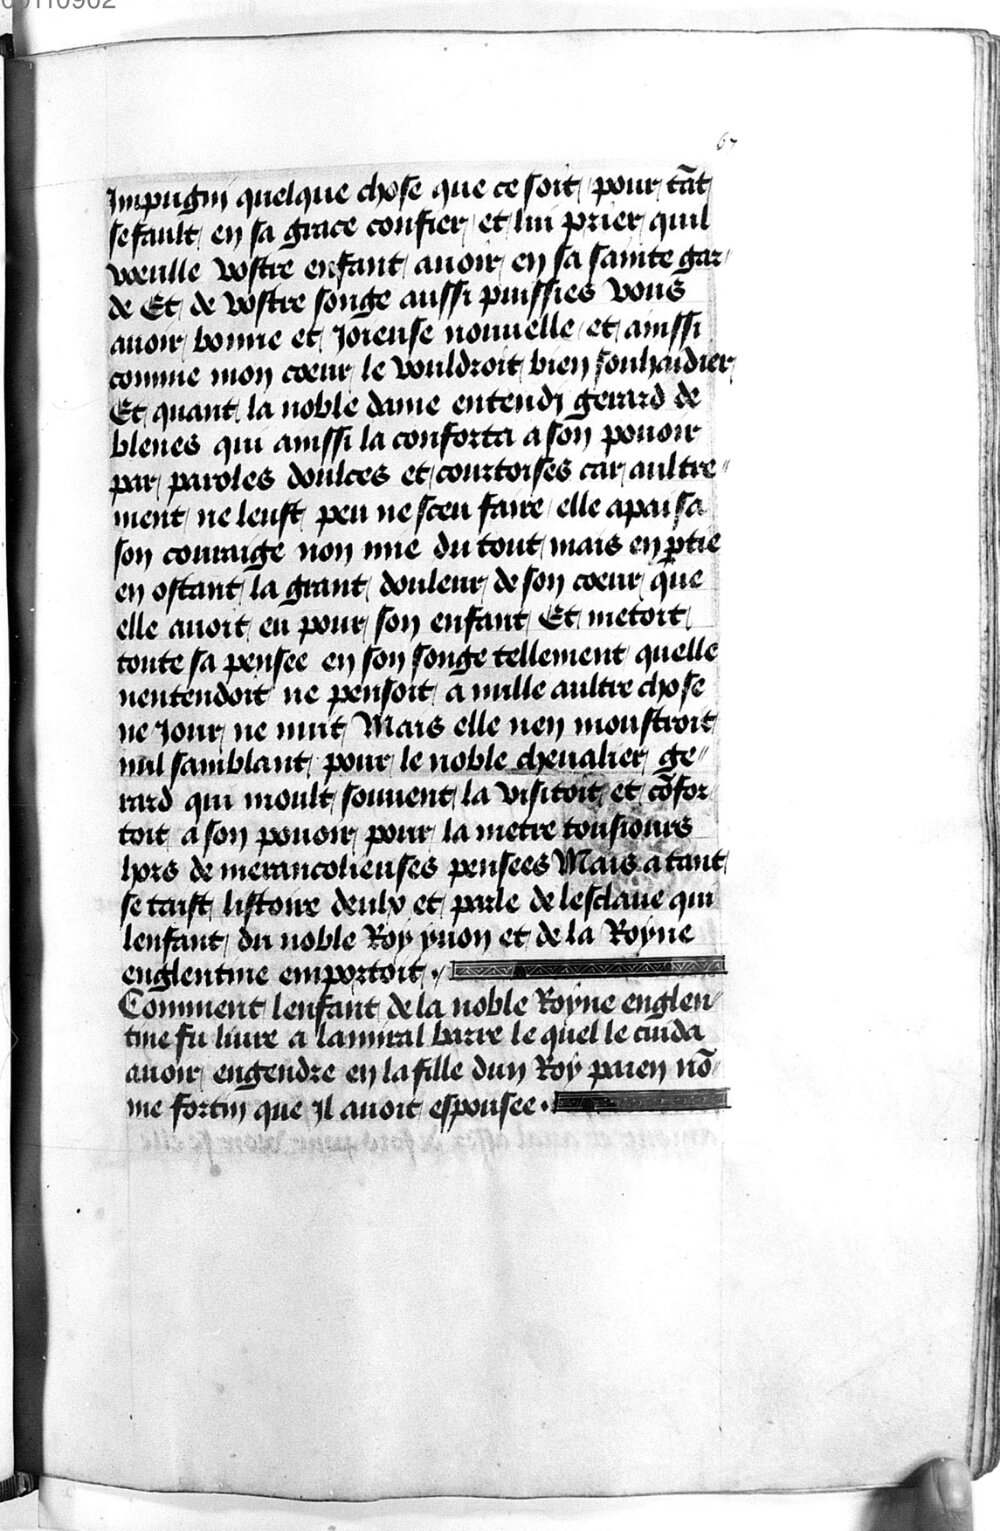 00110902
67
Impugny quelque chose que ce soit pour tāt
se fault en sa grace confier et lui prier quil
vœulle vostre enfant avoir en sa sainte gar
de Et de vostre songe aussi puissies vous
avoir bonne et Joieuse nouvelle et ainssi
comme mon cœur le vouldroit bien souhaidier
Et quant la noble dame entendi gerard de
bleves qui ainssi la conforta a son povoir
par paroles doulces et courtoises car aultre
ment ne leust peu ne sceu faire elle apaisa
son couraige non mie du tout mais en ptie
en ostant la grant douleur de son cœur que
elle avoit eu pour son enfant Et metoit
toute sa pensee en son songe tellement quelle
nentendoit ne pensoit a nulle aultre chose
ne Jour ne nuit Mais elle nen moustroit
nul samblant pour le noble chevalier ge
rard qui moult souvent la visitoit et cōfor
toit a son povoir pour la metre tousiours
hors de merancolieuses pensees Mais a tant
se taist listoire deulx et parle de lesclave qui
lenfant du noble Roy yvon et de la Royne
englentine emportoit .
Comment lenfant de la noble Royne englen
tine fu livre a lamiral barre le quel le cuida
avoir engendre en la fille dun Roy paien nō
me fortin que Il avoit espousee .